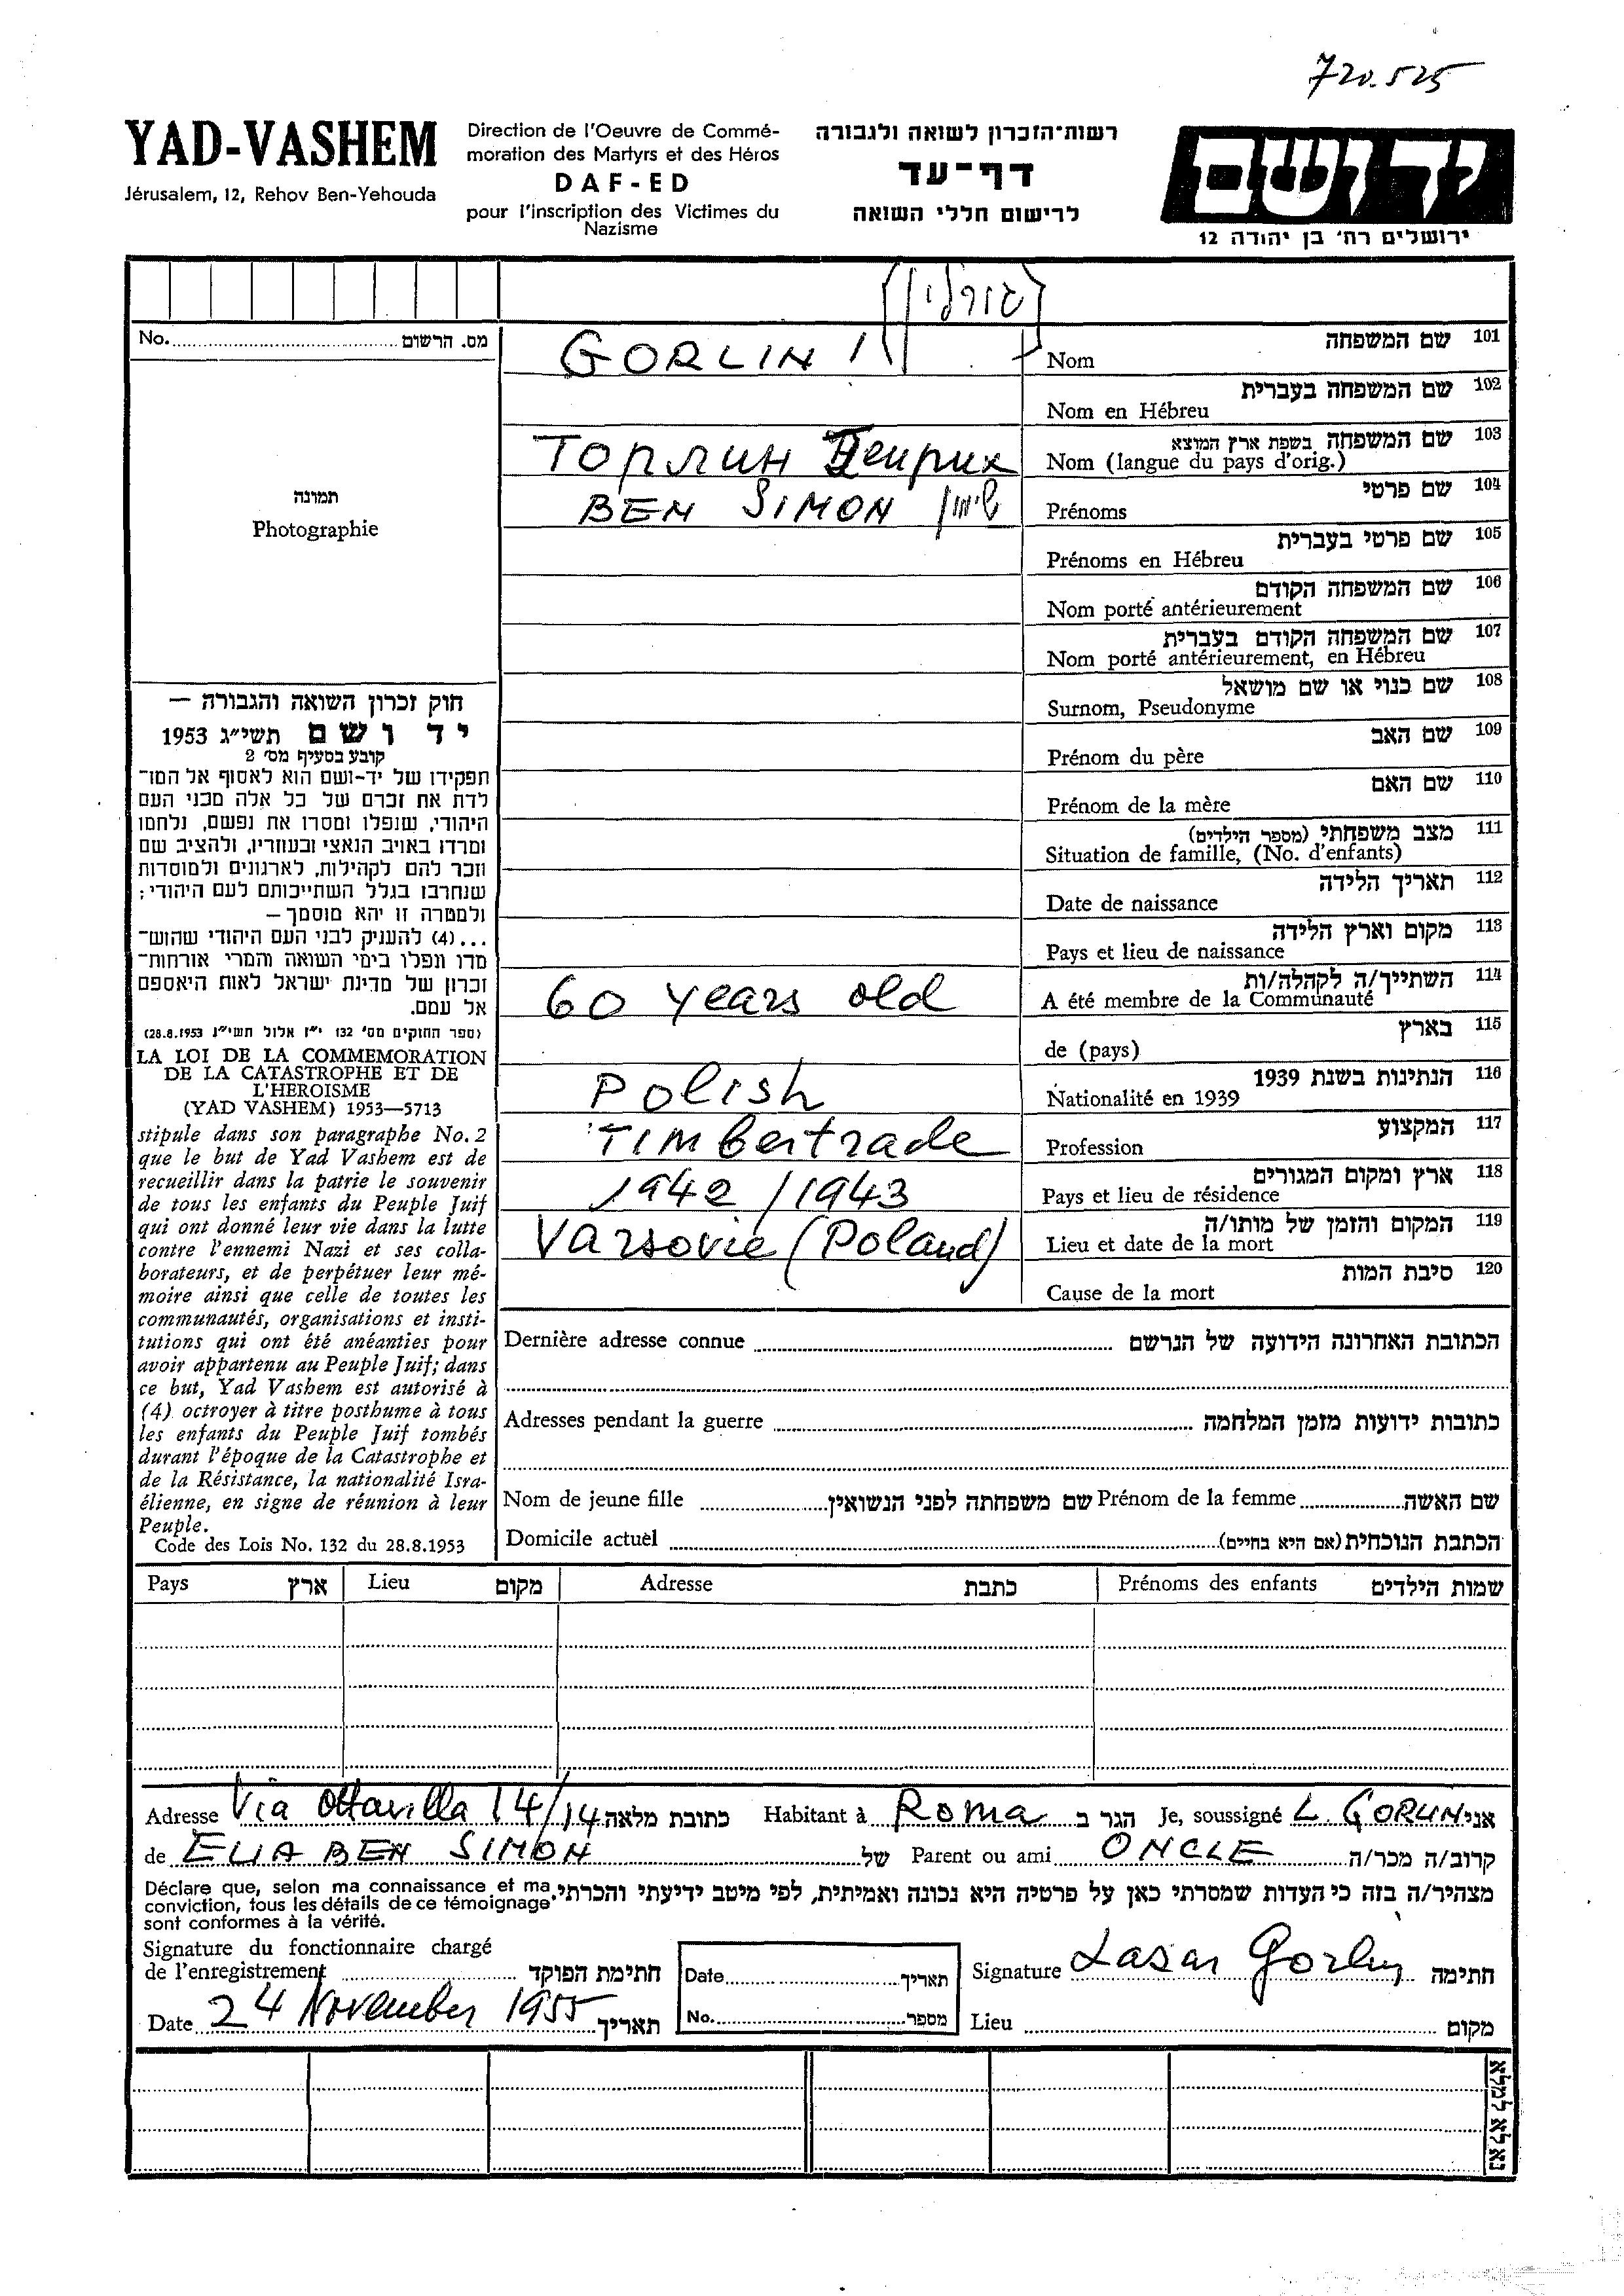 720.525
YAD-VASHEM
Jérusalem, 12, Rehov Ben-Yehouda
Direction de l'Oeuvre de Commé-
moration des Martyrs et des Héros
DAF-ED
pour l'inscription des Victimes du
Nazisme
רשות-הזכרון לשואה ולגבורה
דף-עד
לרישום חללי השואה
יד ושם
ירושלים רח' בן יהודה 12
גורלין
No. מס. הרשום
תמונה
Photographie
חוק זכרון השואה והגבורה —
יד ושם תשי"ג 1953
קובע בסעיף מס' 2
תפקידו של יד-ושם הוא לאסוף אל המו-
לדת את זכרם של כל אלה מבני העם
היהודי, שנפלו ומסרו את נפשם, נלחמו
ומרדו באויב הנאצי ובעוזריו, ולהציב שם
וזכר להם לקהילות, לארגונים ולמוסדות
שנחרבו בגלל השתייכותם לעם היהודי;
ולמטרה זו יהא מוסמך —
...(4) להעניק לבני העם היהודי שהוש-
מדו ונפלו בימי השואה והמרי אזרחות-
זכרון של מדינת ישראל לאות היאספם
אל עמם.
(ספר החוקים מס' 132 י"ז אלול תשי"ג 28.8.1953)
LA LOI DE LA COMMEMORATION
DE LA CATASTROPHE ET DE
L'HEROISME
(YAD VASHEM) 1953—5713
stipule dans son paragraphe No. 2
que le but de Yad Vashem est de
recueillir dans la patrie le souvenir
de tous les enfants du Peuple Juif
qui ont donné leur vie dans la lutte
contre l'ennemi Nazi et ses colla-
borateurs, et de perpétuer leur mé-
moire ainsi que celle de toutes les
communautés, organisations et insti-
tutions qui ont été anéanties pour
avoir appartenu au Peuple Juif; dans
ce but, Yad Vashem est autorisé à
(4) octroyer à titre posthume à tous
les enfants du Peuple Juif tombés
durant l'époque de la Catastrophe et
de la Résistance, la nationalité Isra-
élienne, en signe de réunion à leur
Peuple.
Code des Lois No. 132 du 28.8.1953
GORLIN
101 שם המשפחה
Nom
102 שם המשפחה בעברית
Nom en Hébreu
103 שם המשפחה בשפת ארץ המוצא
Nom (langue du pays d'orig.)
Горлин Генрих
104 שם פרטי
Prénoms
BEN SIMON שימון
105 שם פרטי בעברית
Prénoms en Hébreu
106 שם המשפחה הקודם
Nom porté antérieurement
107 שם המשפחה הקודם בעברית
Nom porté antérieurement, en Hébreu
108 שם בנוי או שם מושאל
Surnom, Pseudonyme
109 שם האב
Prénom du père
110 שם האם
Prénom de la mère
111 מצב משפחתי (מספר הילדים)
Situation de famille, (No. d'enfants)
112 תאריך הלידה
Date de naissance
113 מקום וארץ הלידה
Pays et lieu de naissance
114 השתייך/ה לקהלה/ות
A été membre de la Communauté
60 years old
115 בארץ
de (pays)
116 הנתינות בשנת 1939
Nationalité en 1939
Polish
117 המקצוע
Profession
Timbertrade
118 ארץ ומקום המגורים
Pays et lieu de résidence
1942/1943
119 המקום והזמן של מותו/ה
Lieu et date de la mort
Varsovie (Poland)
120 סיבת המות
Cause de la mort
Dernière adresse connue הכתובת האחרונה הידועה של הנרשם
Adresses pendant la guerre כתובות ידועות מזמן המלחמה
Nom de jeune fille שם משפחתה לפני הנשואין Prénom de la femme שם האשה
Domicile actuel הכתבת הנוכחית (אם היא בחיים)
Pays ארץ Lieu מקום Adresse כתבת Prénoms des enfants שמות הילדים
Adresse Via Ottavilla 14/14 כתובת מלאה Habitant à Roma הגר ב Je, soussigné L. GORLIN אני
de ELIA BEN SIMON של Parent ou ami ONCLE קרוב/ה מכר/ה
Déclare que, selon ma connaissance et ma
conviction, tous les détails de ce témoignage
sont conformes à la vérité.
מצהיר/ה בזה כי העדות שמסרתי כאן על פרטיה היא נכונה ואמיתית, לפי מיטב ידיעתי והכרתי.
Signature du fonctionnaire chargé
de l'enregistrement חתימת הפוקד
Date תאריך
Signature Lasar Gorlin חתימה
Date 24 November 1955 תאריך
No. מספר
Lieu מקום
נא לא למלא